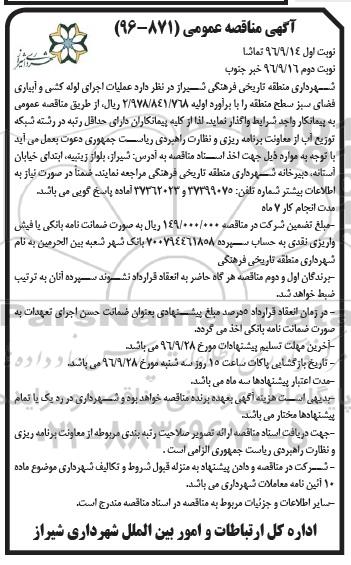 آگهی مناقصه عمومی (۸۷۱-۹۶)
نوبت اول ۹۶/۹/۱۴ تماشا
نوبت دوم ۹۶/۹/۱۶ خبر جنوب
شهرداری منطقه تاریخی فرهنگی شیراز در نظر دارد عملیات اجرای لوله کشی و آبیاری
فضای سبز سطح منطقه را با برآورد اولیه ۲/۹۷۸/۸۴۱/۷۶۸ ریال، از طریق مناقصه عمومی
به پیمانکار واجد شرایط واگذار نماید. لذا از کلیه پیمانکاران دارای حداقل رتبه در رشته شبکه
توزیع آب از معاونت برنامه ریزی و نظارت راهبردی ریاست جمهوری دعوت بعمل می آید
با توجه به موارد ذیل جهت اخذ اسناد مناقصه به آدرس: شیراز، بلوار زینبیه، ابتدای خیابان
آستانه، دبیرخانه شهرداری منطقه تاریخی فرهنگی مراجعه نمایند. ضمناً در صورت نیاز به
اطلاعات بیشتر شماره تلفن: ۳۷۳۹۹۰۷۵ و ۳۷۳۶۲۰۲۳ آماده پاسخ گویی می باشد.
مدت انجام کار ۷ ماه
-مبلغ تضمین شرکت در مناقصه ۱۴۹/۰۰۰/۰۰۰ ریال به صورت ضمانت نامه بانکی یا فیش
واریزی نقدی به حساب سپرده ۷۰۰۷۹۴۴۶۱۸۵۸ بانک شهر شعبه بین الحرمین به نام
شهرداری منطقه تاریخی فرهنگی
-برندگان اول و دوم مناقصه هر گاه حاضر به انعقاد قرارداد نشوند سپرده آنان به ترتیب
ضبط خواهد شد.
- در زمان انعقاد قرارداد ۵درصد مبلغ پیشنهادی بعنوان ضمانت حسن اجرای تعهدات به
صورت ضمانت نامه بانکی اخذ می گردد.
-آخرین مهلت تسلیم پیشنهادات مورخ ۹۶/۹/۲۸ می باشد.
- تاریخ بازگشایی پاکات ساعت ۱۵ روز سه شنبه مورخ ۹۶/۹/۲۸ می باشد.
-مدت اعتبار پیشنهادها سه ماه می باشد.
-بدیهی است هزینه آگهی بعهده برنده مناقصه خواهد بود و شهرداری در رد یک یا تمام
پیشنهادها مختار می باشد.
-جهت دریافت اسناد مناقصه ارائه تصویر صلاحیت رتبه بندی مربوطه از معاونت برنامه ریزی
و نظارت راهبردی ریاست جمهوری الزامی است .
- شرکت در مناقصه و دادن پیشنهاد به منزله قبول شروط و تکالیف شهرداری موضوع ماده
۱۰ آئین نامه معاملات شهرداری می باشد.
-سایر اطلاعات و جزئیات مربوط به مناقصه در اسناد مناقصه مندرج است .
اداره کل ارتباطات و امور بین الملل شهرداری شیراز